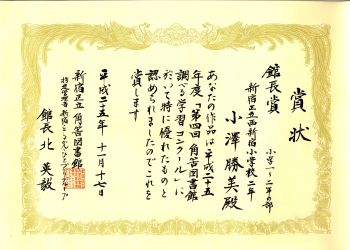 賞状
館長賞
小学一・二年の部
新宿区立西新宿小学校二年
小澤勝美殿
あなたの作品は平成二十五
年度「第四回角筈図書館
調べる学習コンクール」に
おいて特に優れたものと
認められましたのでこれを
賞します
平成二十五年十一月十七日
新宿区立角筈図書館
館長 北 英毅